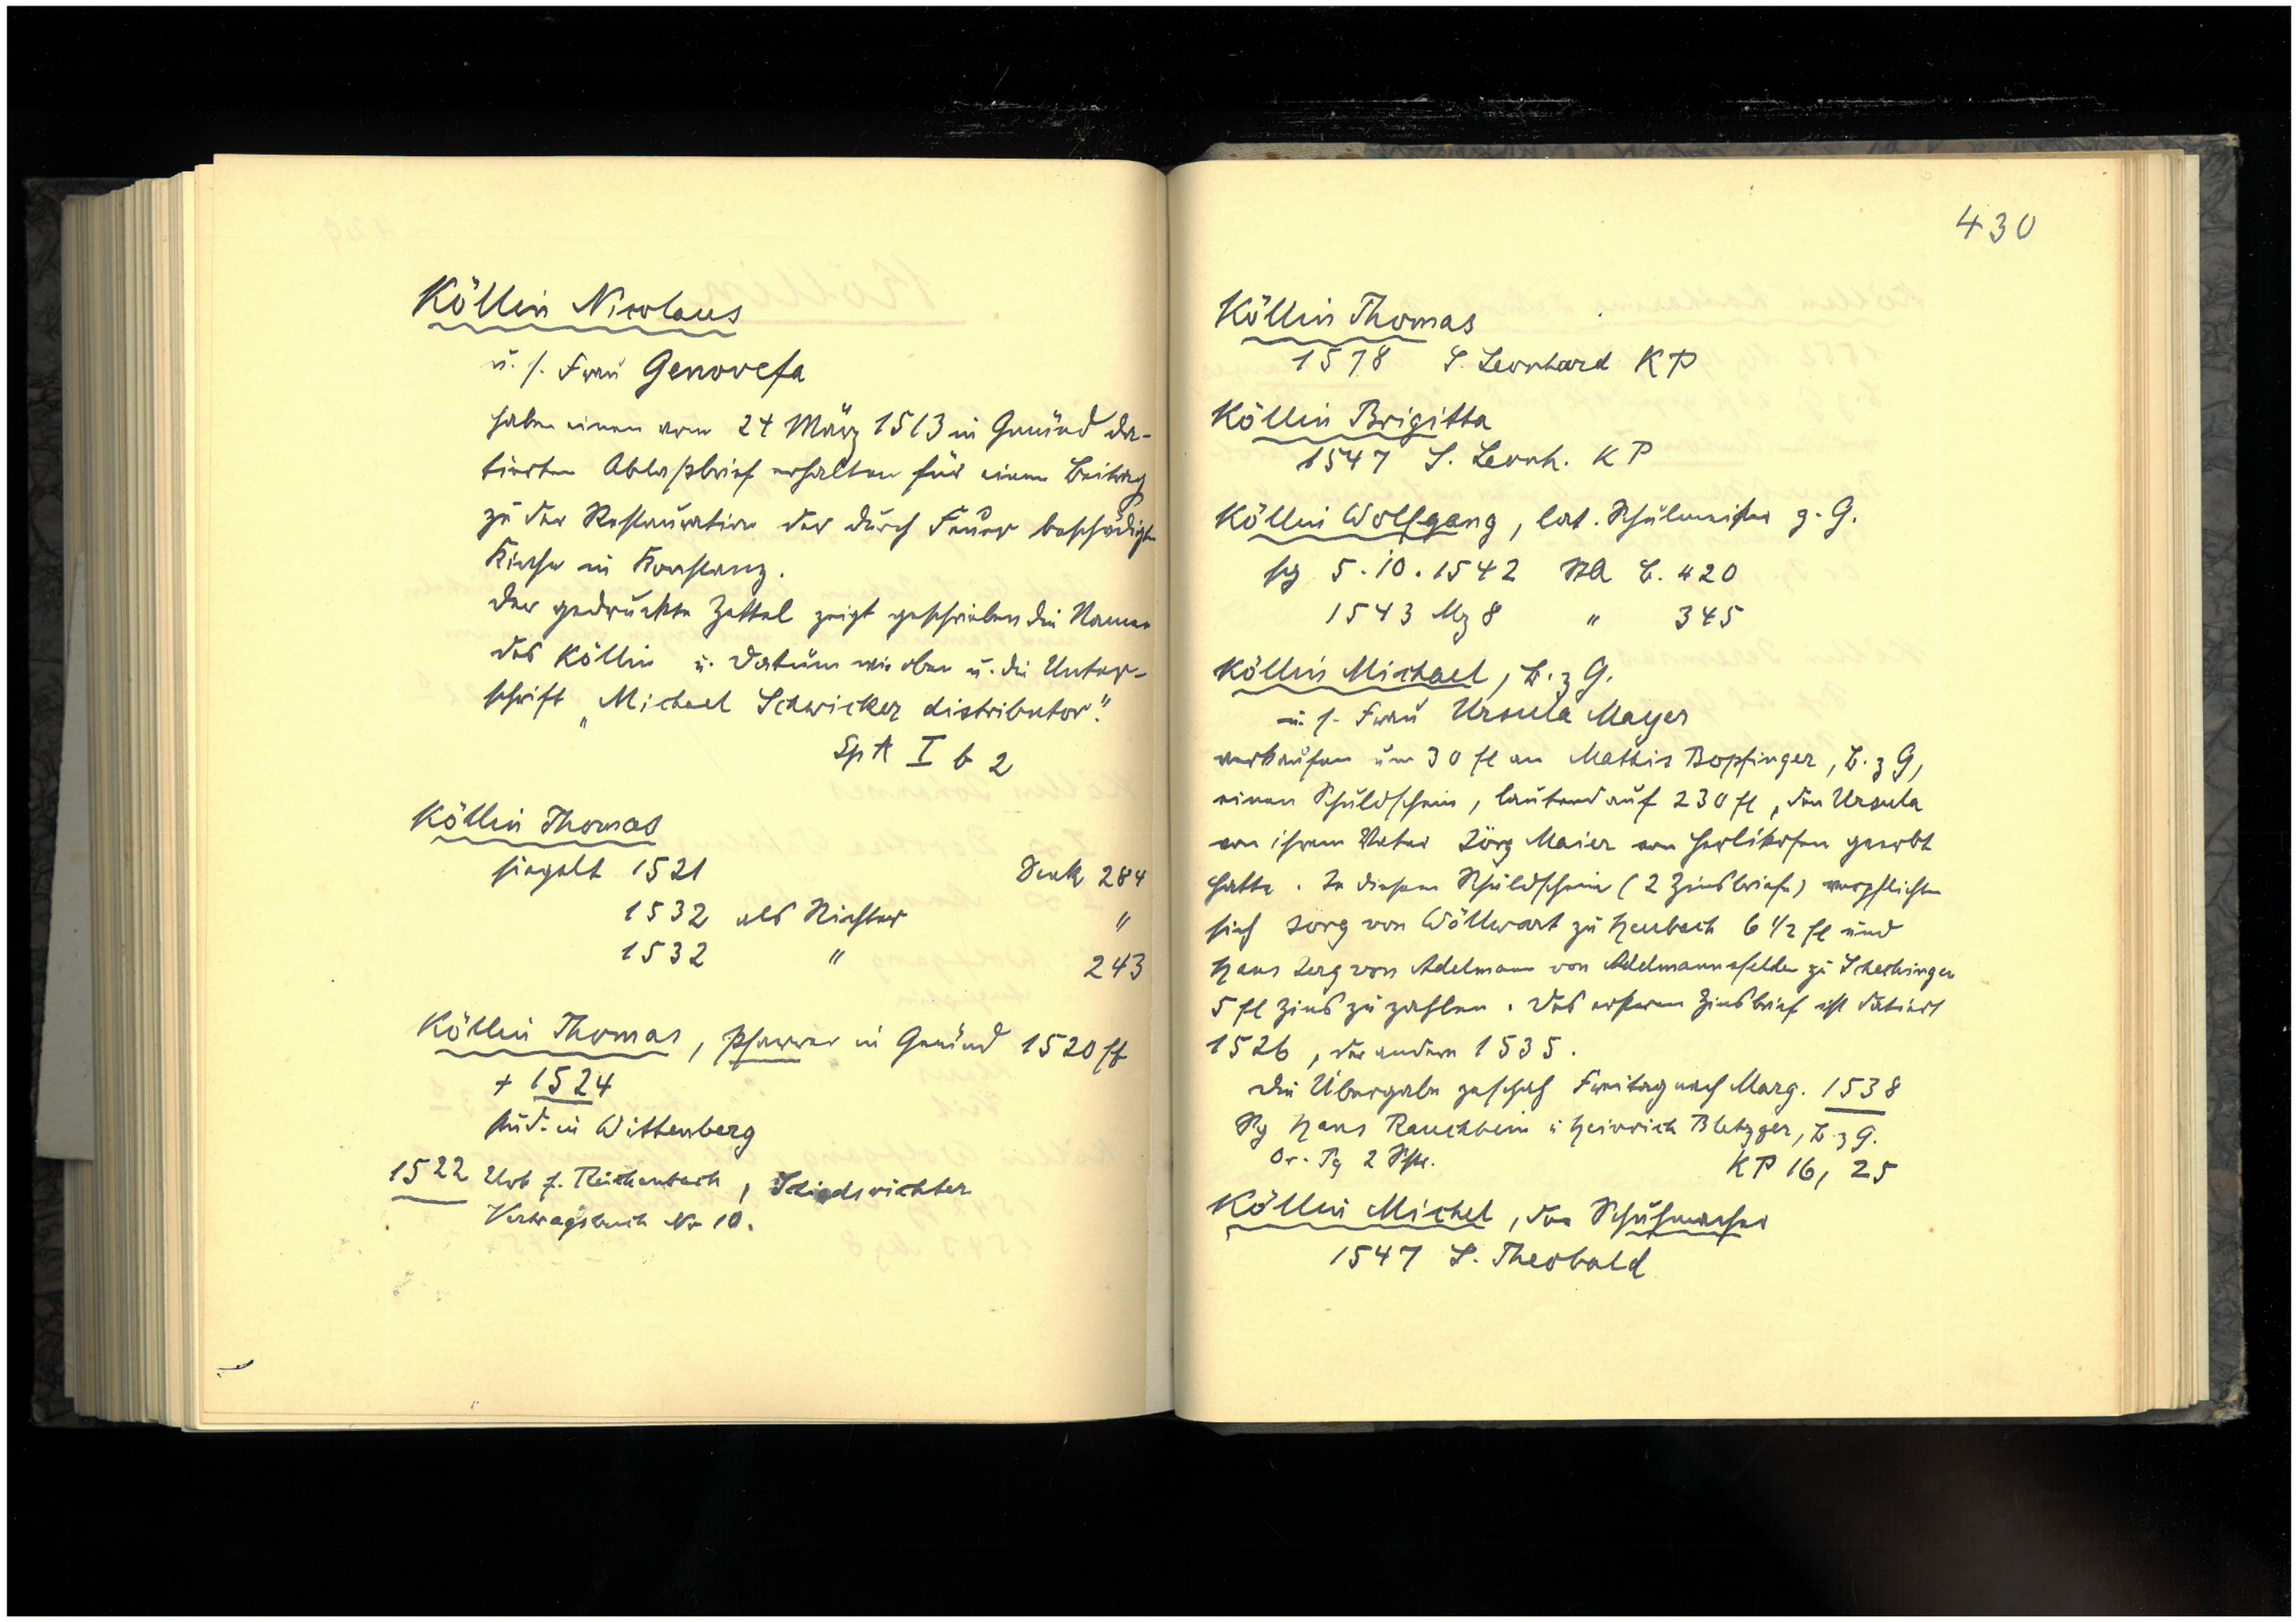 Köllin Nicolaus
u. s. Frau Genovefa
haben einen vom 24 März 1513 in Gmünd da-
tierten Ablaßbrief erhalten für einen Beitrag
zu der Restauration der durch Feuer beschädigten
Kirche in Konstanz.
Der gedruckte Zettel zeigt geschrieben die Namen
des Köllin u. Datum wie oben u. die Unter-
schrift „Michael Schwicker distributor."
Sp A I b 2
Köllin Thomas
siegelt 1521 Denk 284
1532 als Richter "
1532 " 243
Köllin Thomas, Pfarrer in Gmünd 1520 ff
+ 1524
stud. in Wittenberg
1522 Urb f. Reichenbach, Schiedsrichter
Vertragsbuch No 10.
430
Köllin Thomas
1578 S. Leonhard KP
Köllin Brigitta
1547 S. Leonh. KP
Köllin Wolfgang, lat. Schulmeister z. G.
sg 5.10.1542 StA B. 420
1543 Mz 8 " 345
Köllin Michael, B. z G.
u. s. Frau Ursula Mayer
verkaufen um 30 fl an Mathis Bopfinger, B. z G,
einen Schuldschein, lautend auf 230 fl, den Ursula
von ihrem Vater Jörg Maier von Herlikofen geerbt
hatte. In diesem Schuldschein (2 Zinsbriefe) verpflichten
sich Jörg von Wöllwart zu Heubach 6 1/2 fl und
Hans Jerg von Adelmann von Adelmannsfelden zu Schechingen
5 fl Zins zu zahlen. Des ersteren Zinsbrief ist datiert
1526, der andere 1535.
Die Übergabe geschah Freitag nach Marg. 1538
Sg Hans Rauchbein u Heinrich Bletzger, B. z G.
Or. Pg 2 KP 16, 25
Köllin Michel, der Schuhmacher
1547 S. Theobald